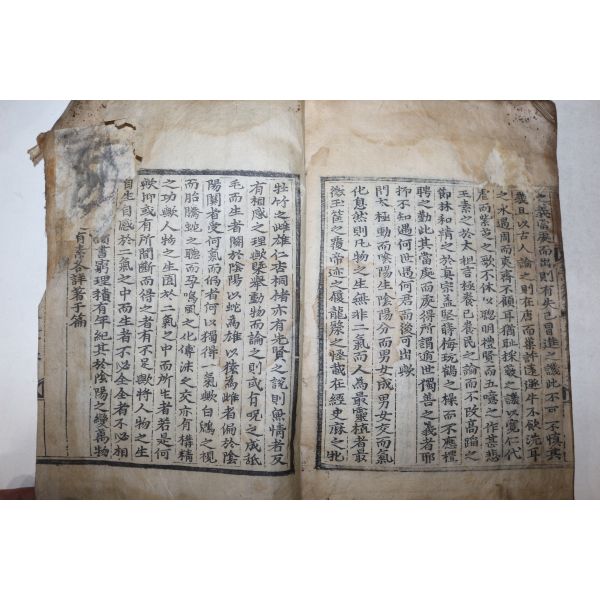 之義當處而出則有失已冒進之譏此不可不慎其
幾且以古人論之則在唐而巢許遜避牛不飲洗耳
之水遇周而夷齊不顧耳猶耻採薇之譏以寬仁代
虐而紫芝之歌不休以聰明禮賢而五噫之作甚悲
王素之於太祖言極養己養民之論而不改高蹈之
節林和靖之於真宗孟堅蒔梅玩鶴之操而不應禮
聘之勤此其當處而處得所謂遁世獨善之義者耶
抑不知遇何世遇何君而後可出歟
問太極動而陽生陰陽分而男女成男女交而氣
化息然則凡物之生無非二氣而人為最靈植者最
微玉筐之覆帝迹之履龍漦之怪載在經史麻之牝
牡竹之雌雄仁杏桐楮亦有先賢之說則無情者又
有相感之理歟槩舉動物而論之則或有呪之成蚳
毛而生者關於陰陽以蛇為雄以猿為雌者偏於陰
陽關者受何氣而偏者何以獨得一氣歟白鷁之視
而胎騰蛇之聽而孕鳴風之化傳沫之交亦有構精
之功歟人物之生囿於二氣之中而所生者若是何
歟抑或有所間斷而得之者有不足歟將人物之生
自生自感於二氣之中而生者不必全全者不必相
讀書窮理積有年紀其於陰陽之變萬物
有素各詳著于篇